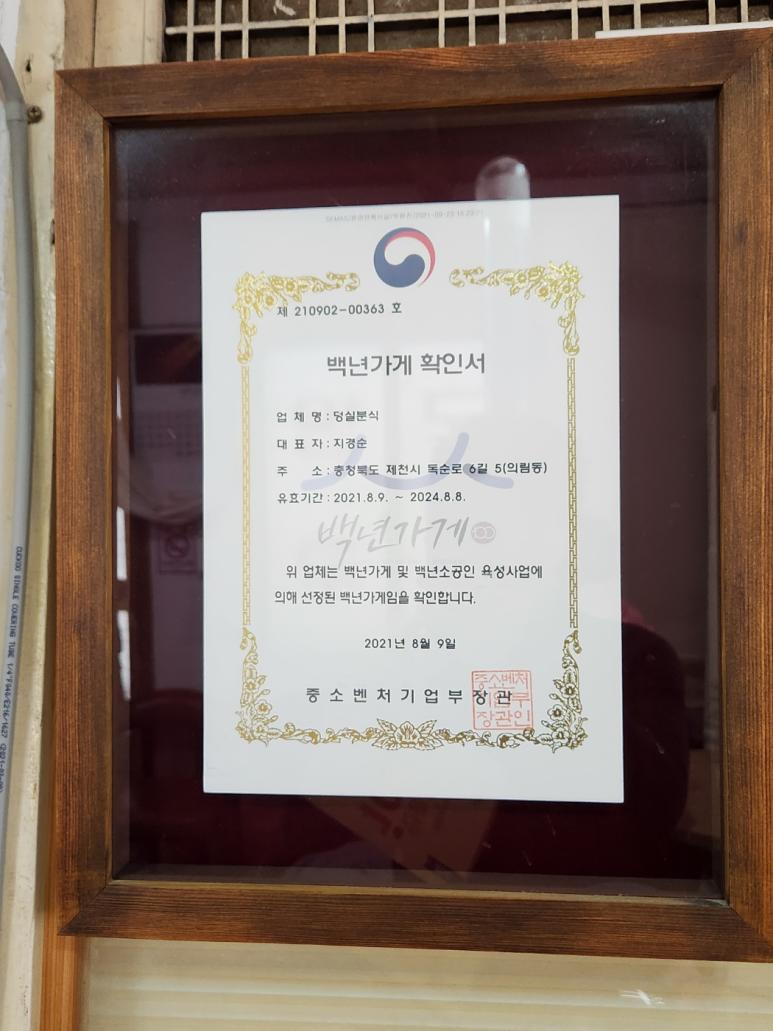 제 210902-00363 호
백년가게 확인서
업 체 명 : 덩실분식
대 표 자 : 지경순
주 소 : 충청북도 제천시 독순로 6길 5(의림동)
유효기간 : 2021.8.9. ~ 2024.8.8.
백년가게
위 업체는 백년가게 및 백년소공인 육성사업에
의해 선정된 백년가게임을 확인합니다.
2021년 8월 9일
중소벤처기업부장관
중소벤처
기업부
장관인